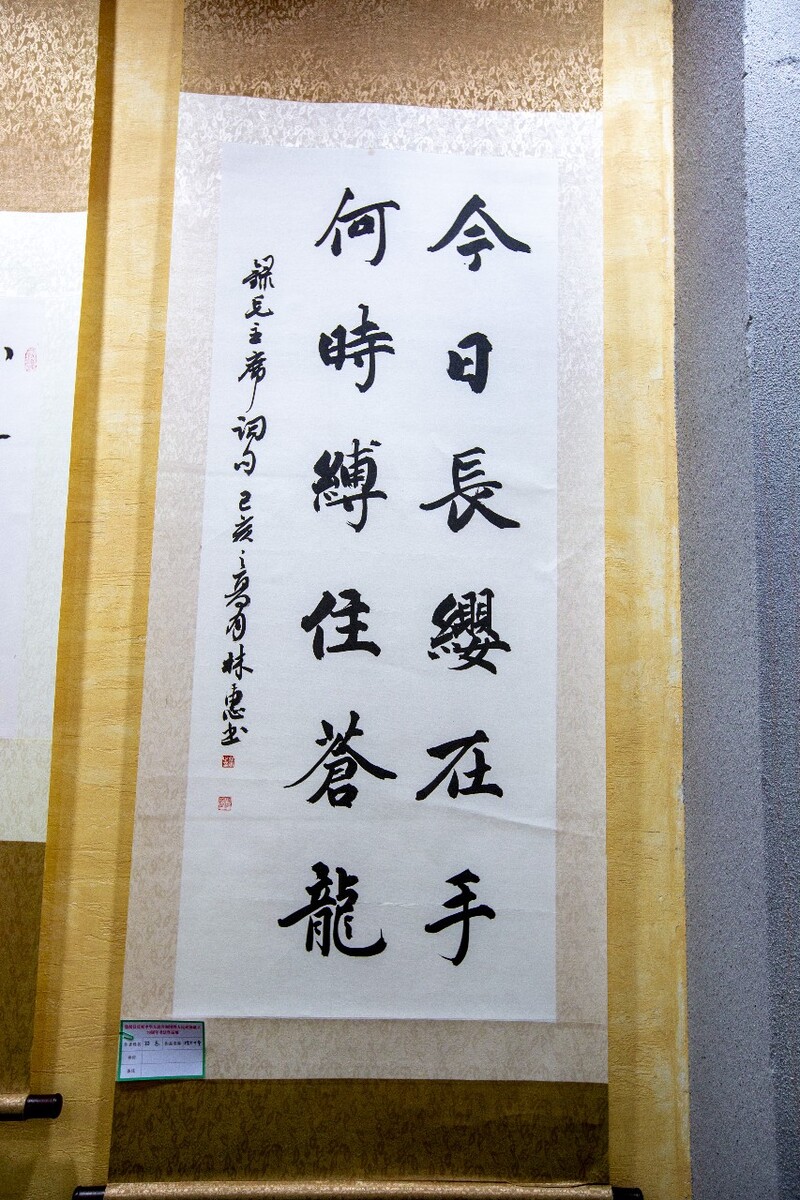 今日長纓在手
何時縛住蒼龍
錄毛主席詞句己亥之
林惠书